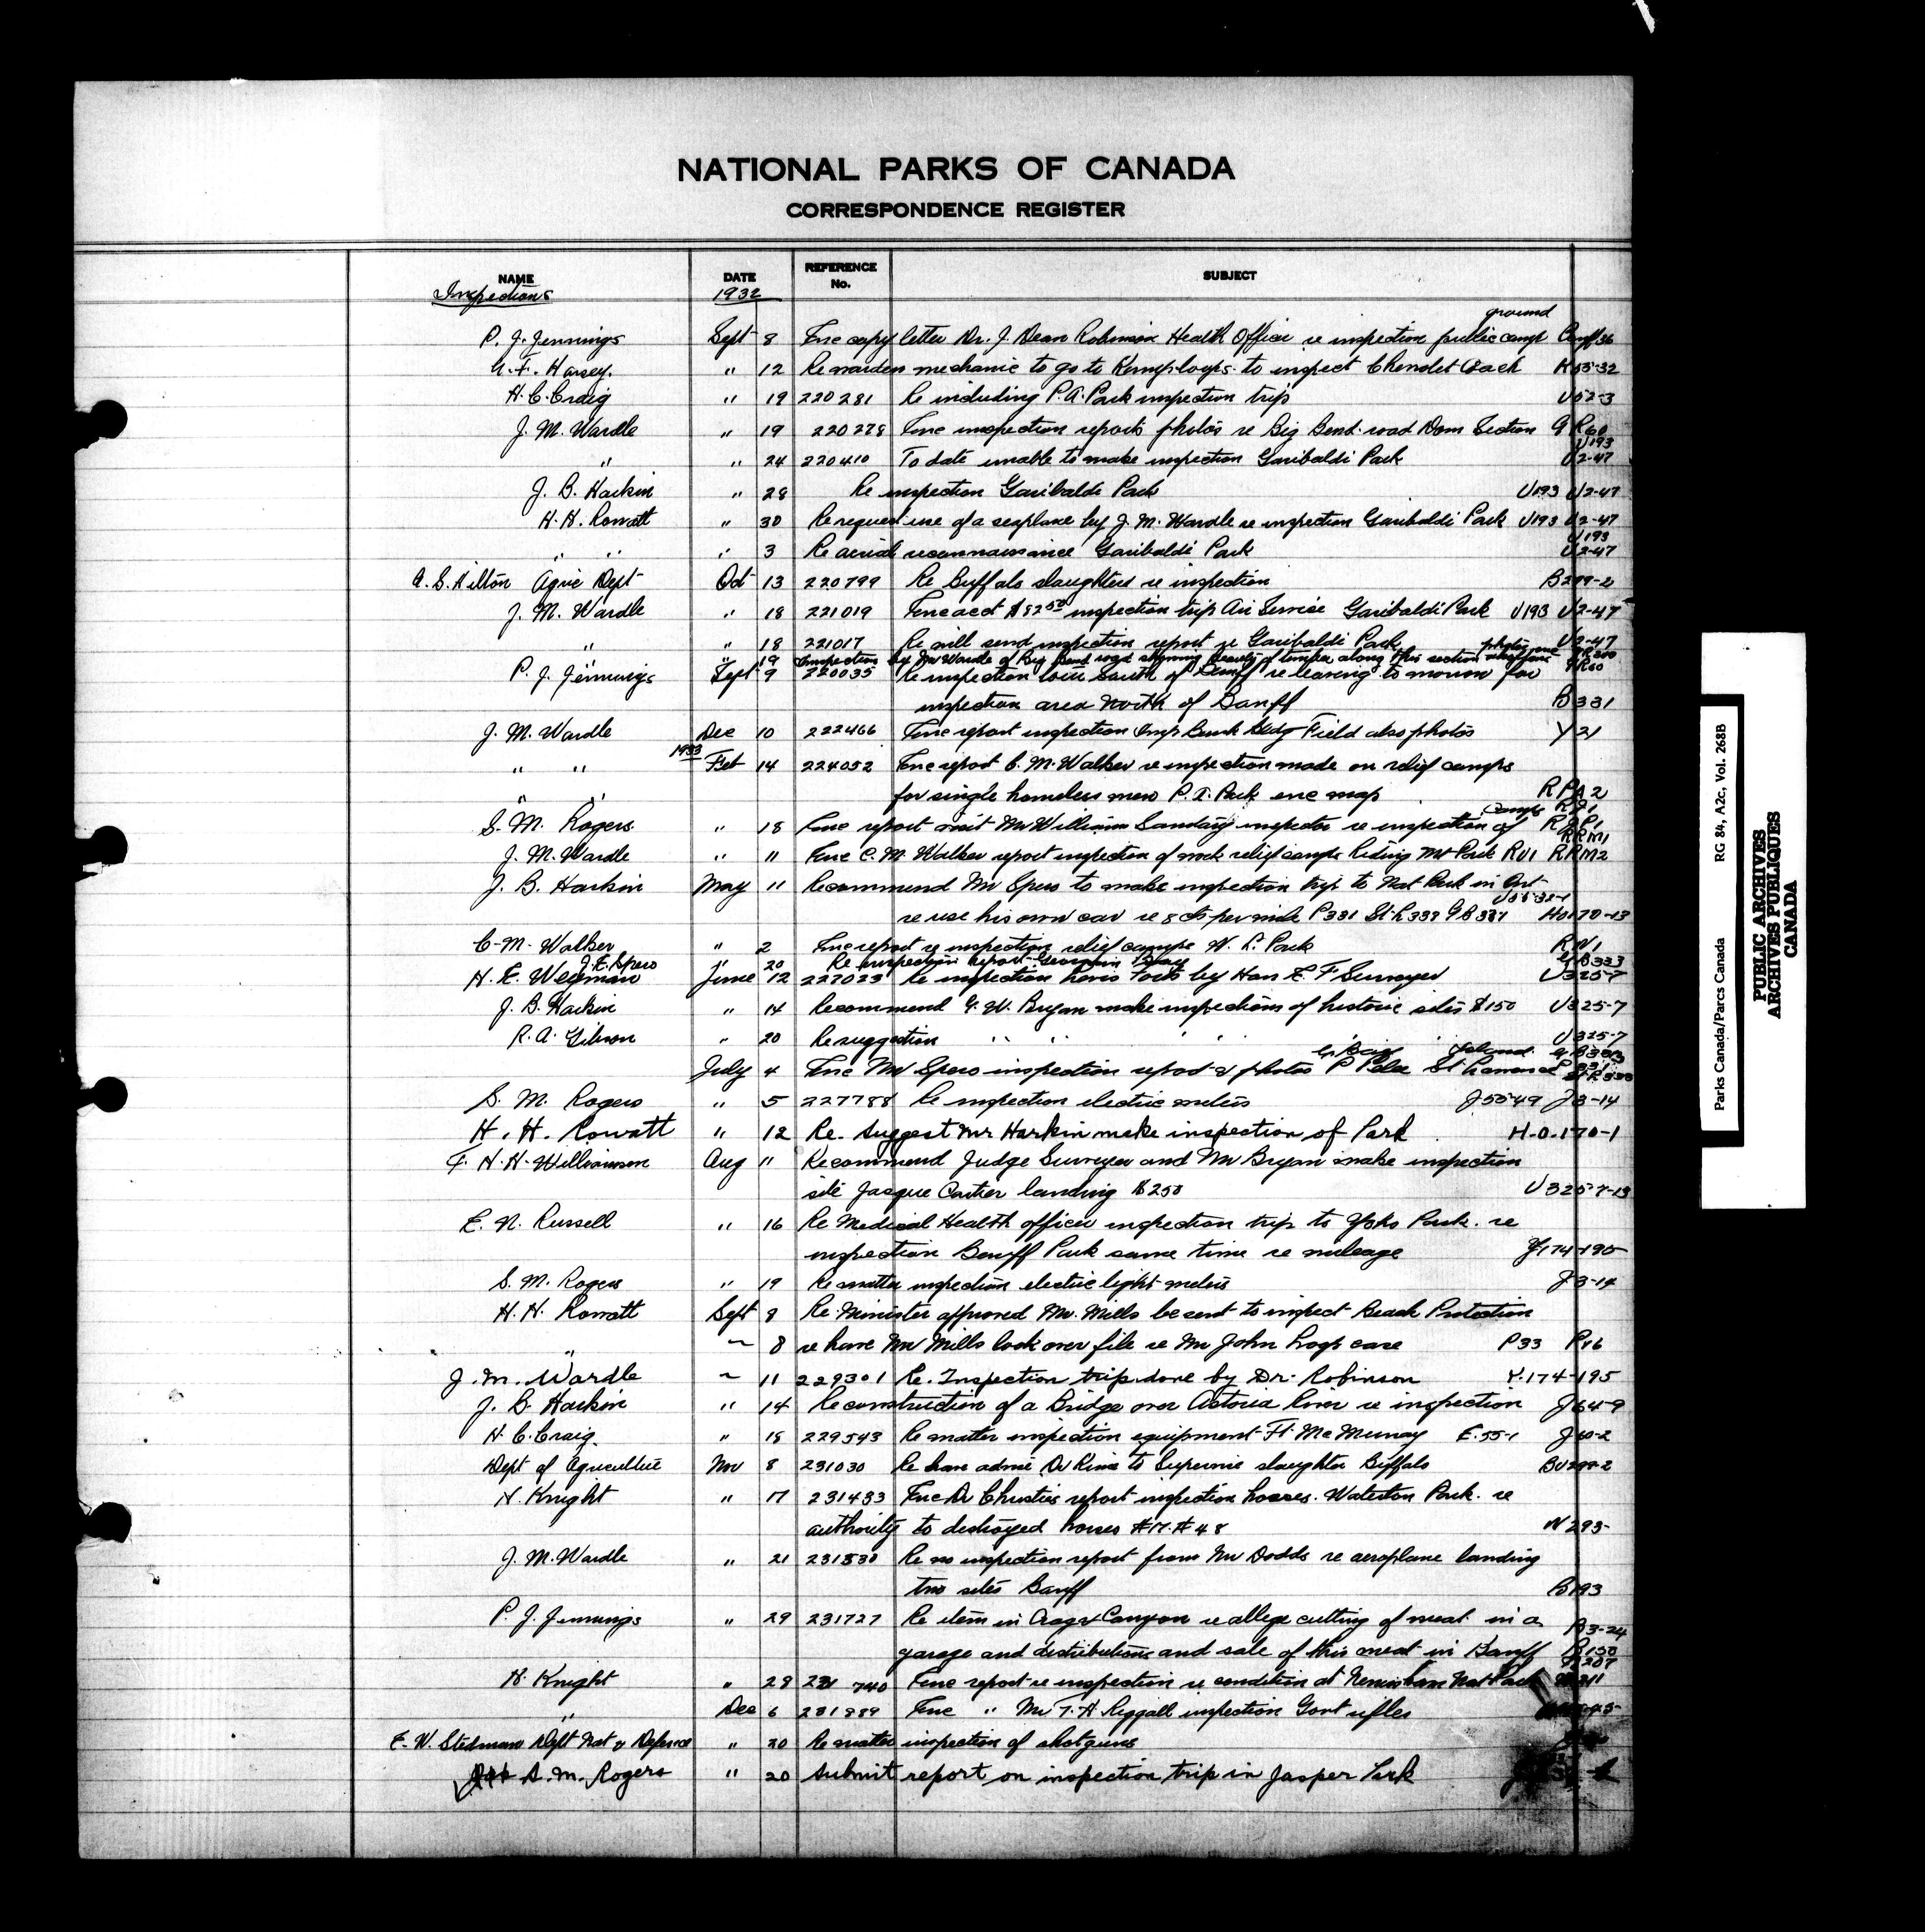 NATIONAL PARKS OF CANADA
CORRESPONDENCE REGISTER
NAME DATE REFERENCE No. SUBJECT
Inspections 1932
ground
P. J. Jennings Sept 8 Enc copy letter Dr. J. Dean Robinson Health Officer re inspection public camp Banff 36
" 12 Re warden mechanic to go to Kamploops to inspect Chevrolet Coach K55-32
H. C. Craig " 19 220281 Re including P.A. Park inspection trip U52-3
J. M. Wardle " 19 220278 Enc inspection reports photos re Big Bend road Dom Section GR60
U193
" " 24 220410 To date unable to make inspection Garibaldi Park U2-47
J. B. Harkin " 28 Re inspection Garibaldi Park U193 U2-47
H. H. Rowatt " 30 Re request use of a seaplane by J. M. Wardle re inspection Garibaldi Park U193 U2-47
U193
" " " 3 Re aerial reconnaissance Garibaldi Park U2-47
Agric Dept Oct 13 220799 Re Buffalo slaughters re inspection B299-2
J. M. Wardle " 18 221019 Enc acct $8250 inspection trip Air Service Garibaldi Park U193 U2-47
" " 18 221017 Re will send inspection report re Garibaldi Park U2-47
" " 19 Inspection by JM Wardle of Big Bend road along this section
P. J. Jennings Sept 9 220035 Re inspection South of Banff re leaving to morrow for GR60
inspection area North of Banff B331
J. M. Wardle Dec 10 222466 Enc report inspection Imp Bank Bldg Field also photos Y21
1933
" " Feb 14 224052 Enc report C. M. Walker re inspection made on relief camps
" " for single homeless men P.A. Park enc map RPA2
camps RJ1
S. M. Rogers " 18 Enc report visit Mr William Sandary inspector re inspection of
RRM1
J. M. Wardle " 11 Enc C. M. Walker report inspection of work relief camps Riding Mt Park RU1 RRM2
J. B. Harkin May 11 Recommend Mr Spero to make inspection trip to Nat Park in Ont
U55-32-1
re use his own car re 8 cts per mile P331 St.L333 GB331 Ho170-13
C. M. Walker " 2 Enc report re inspection relief camps
J. E. Spero " 20 Re inspection report Georgian Bay GB333
June 12 227023 Re inspection by Hon E. F Surveyer U325-7
J. B. Harkin " 14 Recommend G. W. Bryan make inspections of historic sites $150 U325-7
R. A. Gibson " 20 Re suggestion " " " " U325-7
G Bay Island
July 4 Enc Mr Spero inspection report & photos P Pelee St Lawrence
S. M. Rogers " 5 227788 Re inspection electric meters J55-49 J3-14
H. H. Rowatt " 12 Re. Suggest Mr Harkin make inspection of Park H.O.170-1
F. H. H. Williamson Aug 11 Recommend Judge Surveyer and Mr Bryan make inspection
site Jacque Cartier landing $250 U325-7-13
E. N. Russell " 16 Re Medical Health officer inspection trip to Yoho Park. re
inspection Banff Park same time re mileage Y174-195
S. M. Rogers " 19 Re matter inspection electric light meters J3-14
H. H. Rowatt Sept 8 Re Minister approved Mr. Mills be sent to inspect Beach Protection
" " 8 re have Mr Mills look over file re Mr John case P33 P46
J. M. Wardle " 11 229301 Re. Inspection trip done by Dr. Robinson Y.174-195
J. B. Harkin " 14 Reconstruction of a Bridge over Astoria River re inspection J64-9
H. C. Craig. " 18 229543 Re matter inspection equipment Ft. McMurray E.55-1 J60-2
Dept of Agriculture Nov 8 231030 Re have advise Dr to Supervise slaughter Buffalo BU299-2
H. Knight " 17 231483 Enc Dr Christies report inspection horses. Waterton Park. re
authority to destroyed horses #17. #48 W293-
J. M. Wardle " 21 231530 Re no inspection report from Mr Dodds re aeroplane landing
two sites Banff B193
P. J. Jennings " 29 231727 Re item in Crag & Canyon re allege cutting of meat in a B3-24
garage and distributions and sale of this meat in Banff B150
B207
H. Knight " 29 231740 Enc report re inspection re condition at Nemiskam Nat Park
" Dec 6 231889 Enc " Mr F. H Riggall inspection Govt rifles
E. W. Stedman Dept Nat & Defence " 20 Re matter inspection of shotguns
S. M. Rogers " 20 Submit report on inspection trip in Jasper Park
Parks Canada/Parcs Canada RG 84, A2c, Vol. 268B
PUBLIC ARCHIVES
ARCHIVES PUBLIQUES
CANADA